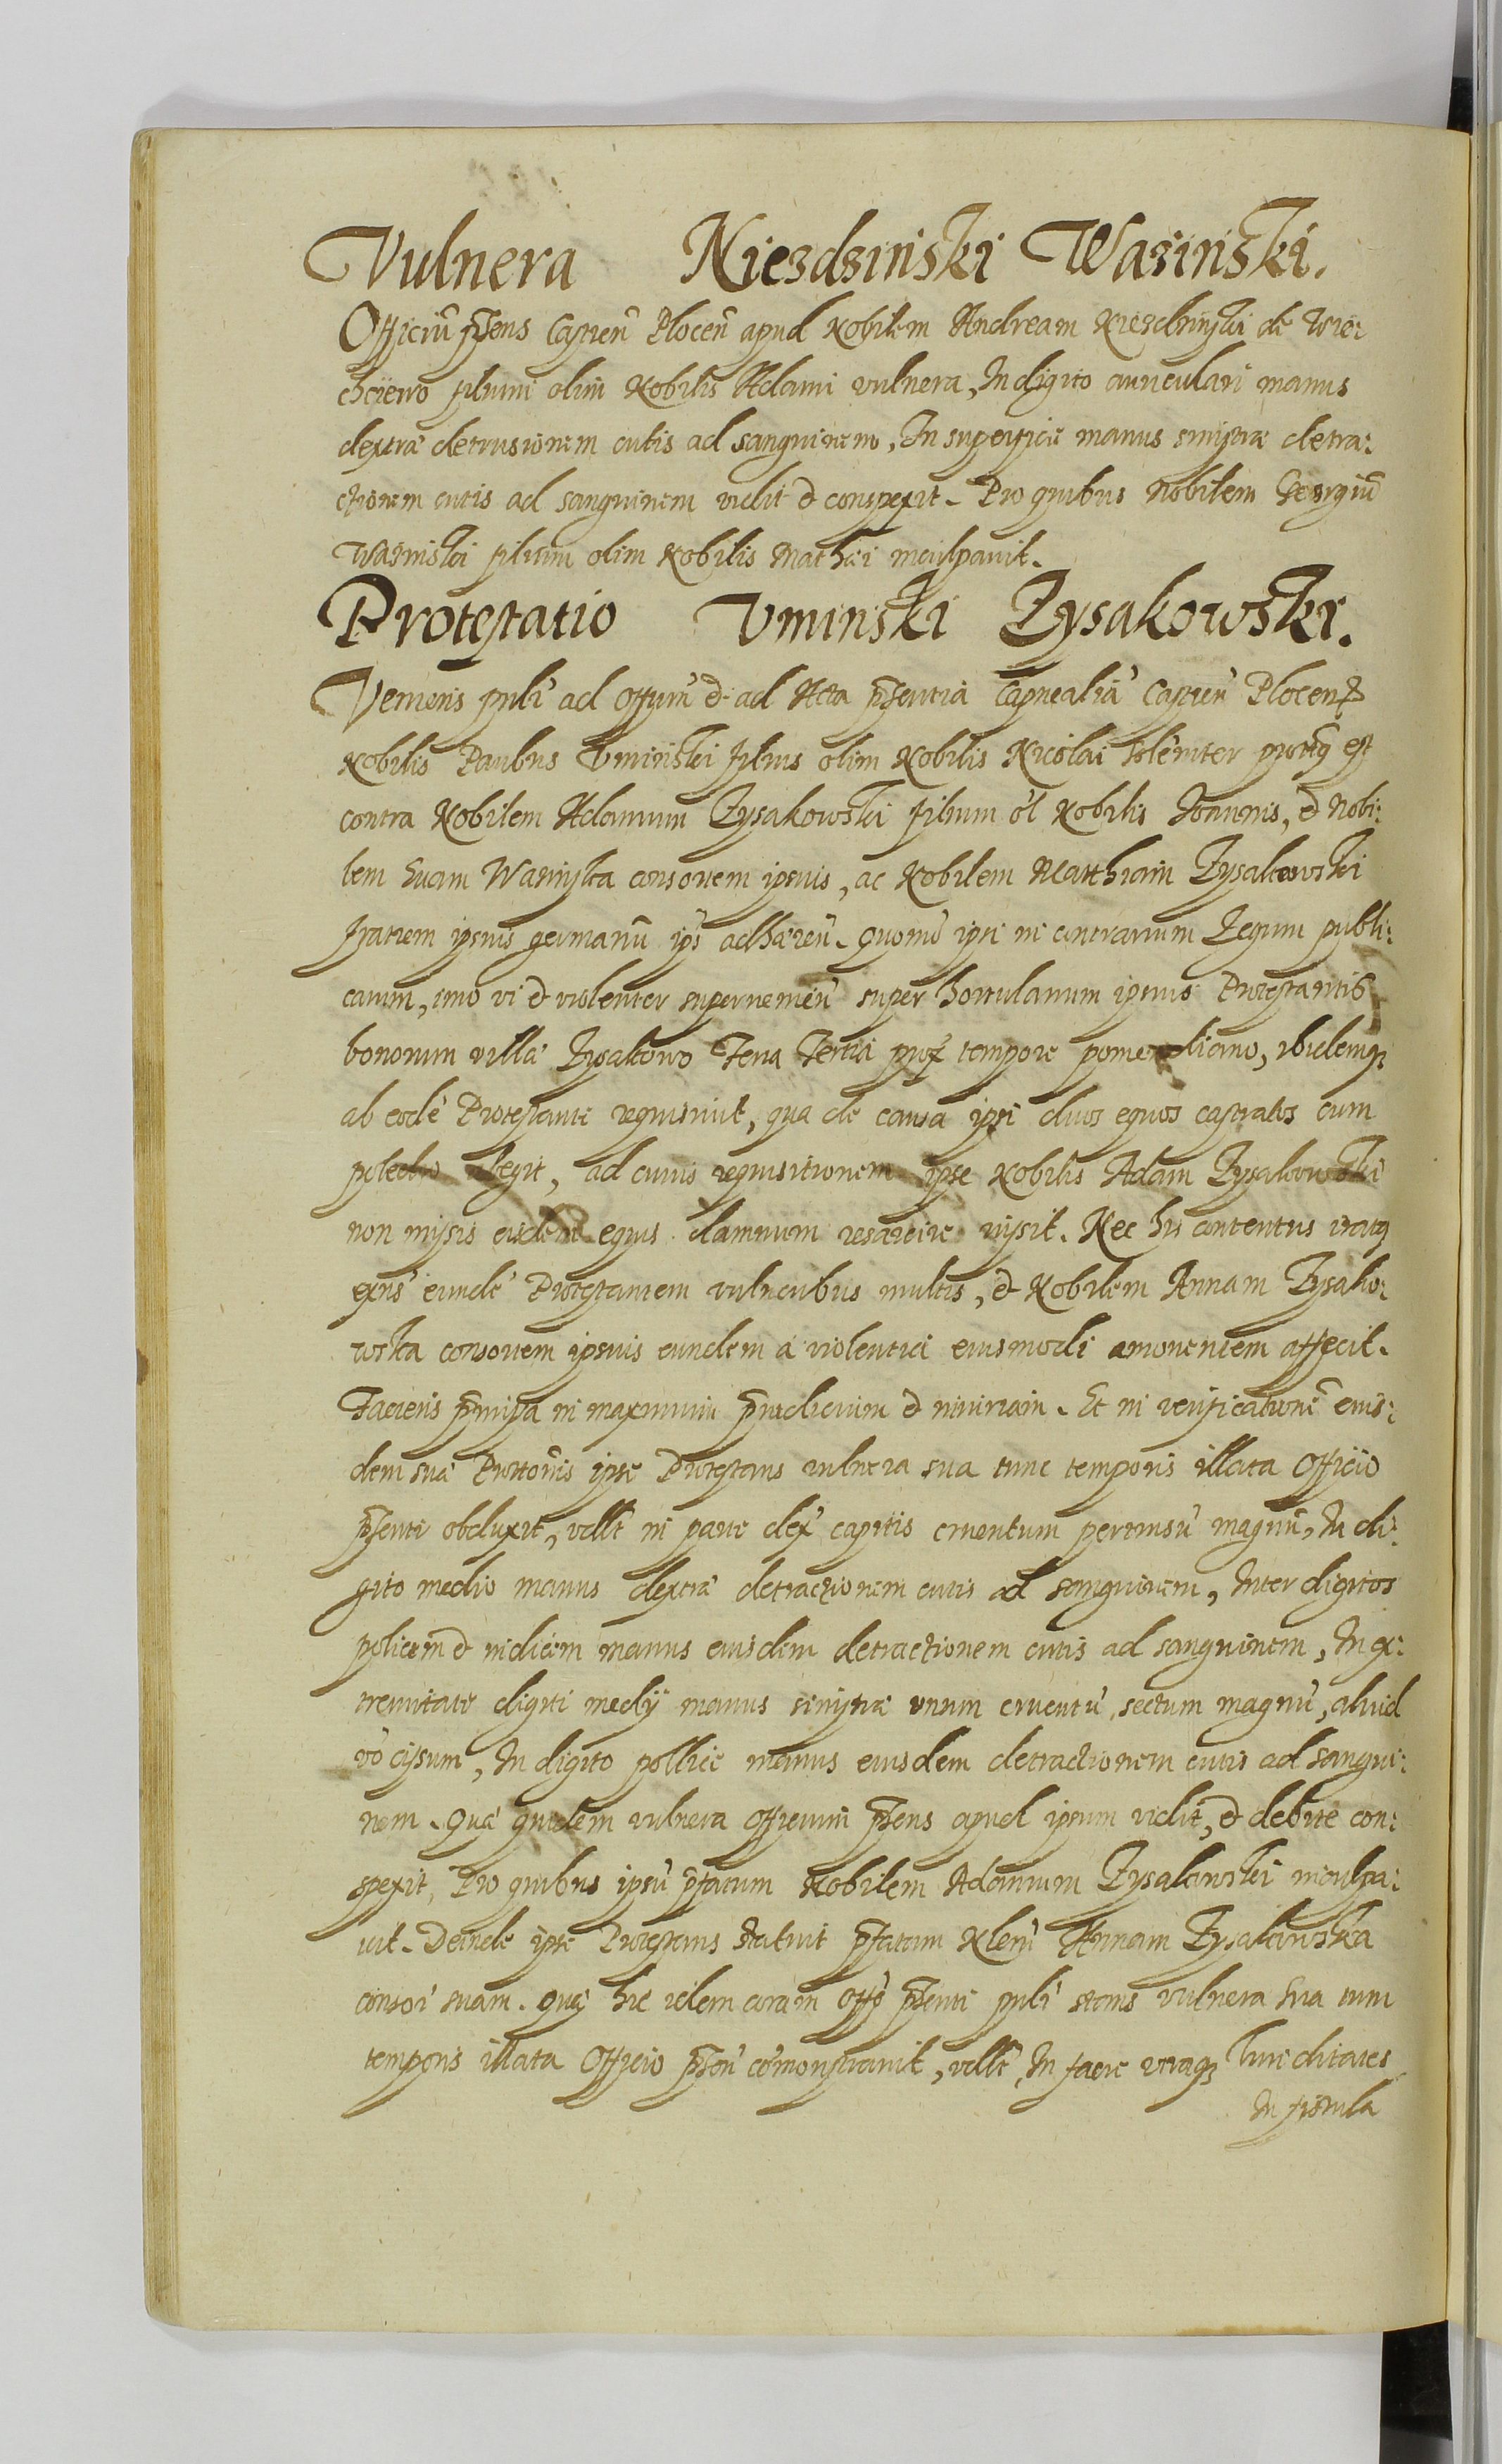 Vulnera Niezdziński Waziński.
Officiū p̄sens Castren̄ Plocen̄ apud Nobilem Andream Niezdzinski de Wie:
chciewo filium olim Nobilis Adami vulnera, In digito auriculari manus
dextræ detrusionem cutis ad sanguinem, In superficie manus sinistræ detra:
ctionem cutis ad sanguinem vidit & conspexit. Pro quibus Nobilem Georgiū
Wazinski filium olim Nobilis Mathæi inculpavit.
Protestatio Vminski Lysakowski.
Veniens psnlr̄ ad Offm̄ & ad Acta p̄sentia Capnealia Castren̄ Plocen̄
Nobilis Paulus Vminski filius olim Nobilis Nicolai solēniter prottus est
contra Nobilem Adamum Lysakowski filium ol Nobilis Joannis, & Nobi:
lem Evam Wazinska consortem ipsius, ac Nobilem Matthiam Lysakowski
fratrem ipsius germanū ips adhæren̄. Quomō ipsi in contrarium Legum publi:
carum, imo vi & violenter supervenien̄ super hortulanum ipsius Protestantis
bonorum villæ Lysakowo Feria Tertia prox tempore pomeridiano, ibidemq3
ab eodē Protestante requisivit, qua de causa ipsi duos equos castratos cum
poledro abegit, ad cuius requisitionem ipse Nobilis Adam Lysakowski
non missis eisdem equis damnum resarcire iussit. Nec his contentus iratq3
exns eundē Protestantem vulneribus multis, & Nobilem Annam Lysako:
wska consortem ipsius eundem à violentia eiusmodi amoventem affecit.
Faciens p̄missa in maximum p̄iudicium & iniuriam. Et in verificationē eius:
dem suæ Prottōnis ipse Protestans vulnera sua tunc temporis illata Officio
p̄senti obduxit, vdlt in parte dex capitis cruentum percussū magnū, In di:
gito medio manus dextræ detractionem cutis ad sanguinem, Inter digitos
policem & indicem manus eiusdem detractionem cutis ad sanguinem, In ex:
tremitate digiti medÿ manus sinistræ unum cruentū, sectum magnū, aliud
vō cissum, In digito pollice manus eiusdem detractionem cutis ad sangui:
nem. Quæ quidem vulnera Officium p̄sens apud ipsum vidit, & debite con:
spexit, Pro quibus ipsū p̄fatum Nobilem Adamum Lysakowski inculpa:
vit. Deinde ipse Protestans statuit p̄fatam Nlem̄ Annam Lysakowska
consor suam. Quæ hic idem coram Offo p̄senti psnlr̄ stans vulnera sua tum
temporis illata Officio p̄sēn cōmonstravit, vdlt, In facie utraq3 livciditates
In fistula